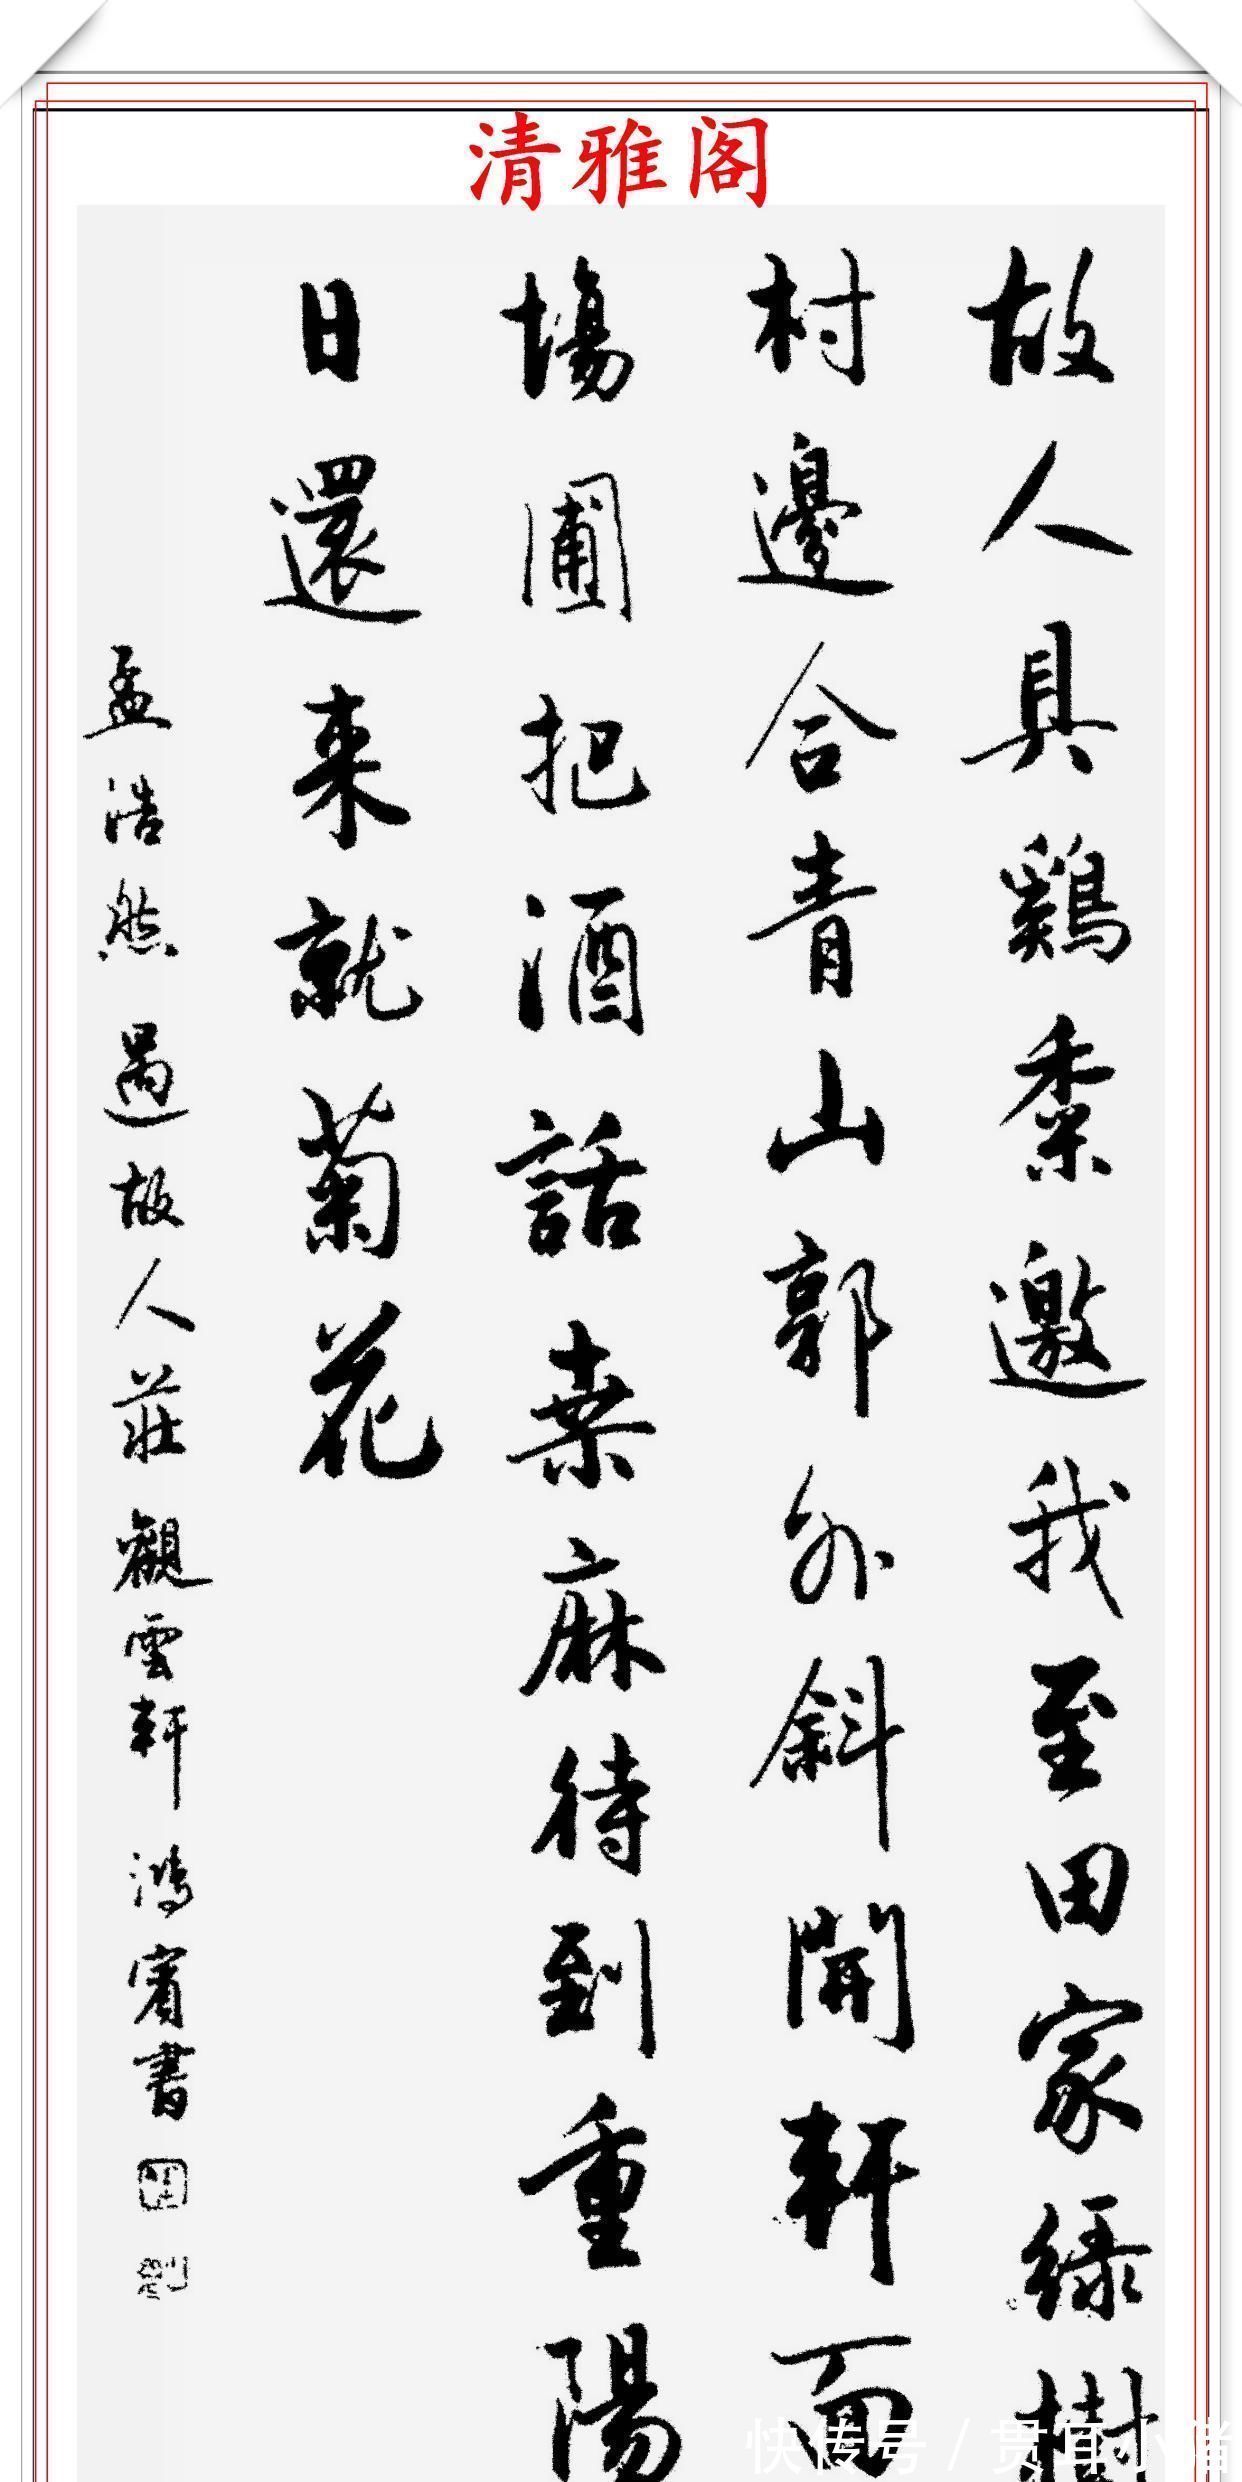 清雅阁
故人具鷄黍邀我至田家綠樹
村邊合青山郭外斜開軒面
場圃把酒話桑麻待到重陽
日還来就菊花
孟浩然過故人莊觀雲軒鴻賓書
快传号/贯耳小猪